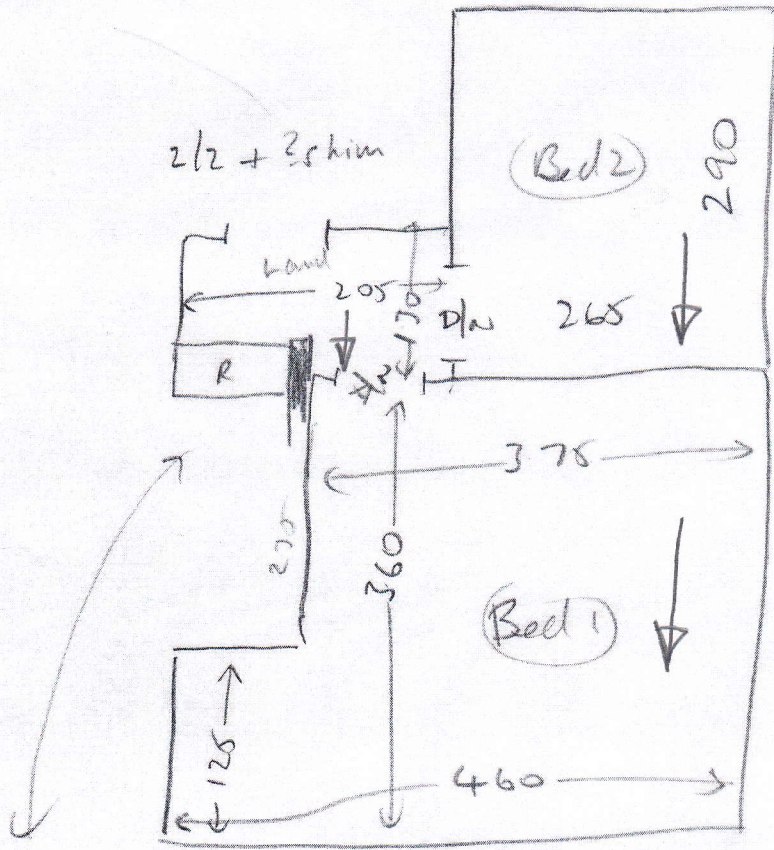 2/2 + ?shim
Bed 2
290
Land
205
130
D/N
265
R
375
275
360
Bed 1
125
460